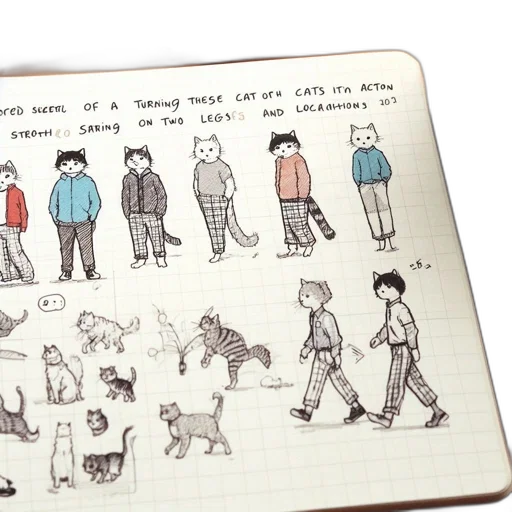 ORED SCETL OF A TURNING THESE CAT OTH CATS ITN ACTON
STROTH SARING ON TWO LEGS AND LOCARTHIONS 303